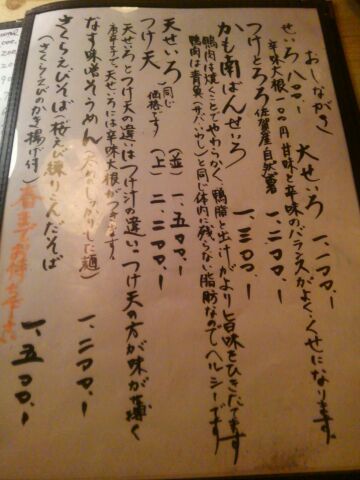 おしながき
せいろ 八〇〇.ー 大せいろ 一、一〇〇.ー
辛味大根 一〇〇円 甘味と辛味のバランスがよく、くせになります
つけとろろ 佐賀産自然薯 一、二〇〇.ー
かも南ばんせいろ 一、三〇〇.ー
鴨肉は焼くことでやわらかく、鴨脂と出汁がより旨味をひきたてます
鴨肉は青魚(サバ、いわし)と同じ体内に残らない脂肪なのでヘルシーです
天せいろ (並) 一、五〇〇.ー
つけ天 同じ価格です (上) 二、二〇〇.ー
天せいろとつけ天の違いはつけ汁の違い。つけ天の方が味が薄く
天せいろには辛味大根がつきます。
なす味噌そうめん 一、二〇〇.ー
さくらえびそば(桜えび練りこんだそば 一、五〇〇.ー
(さくらえびのかき揚げ付) 春までお待ち下さい